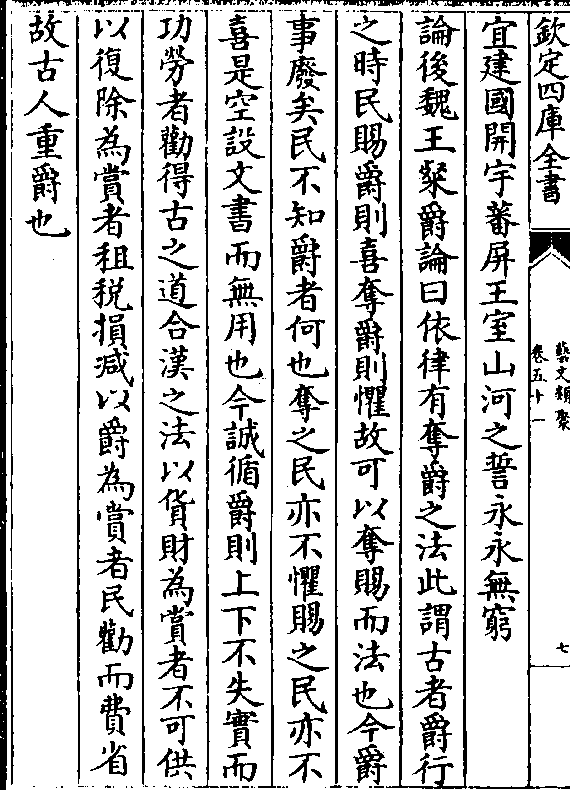 欽定四庫全書
藝文類聚
卷五十一
七
宜建國開宇蕃屏王室山河之誓永永無窮
論後魏王粲爵論曰依律有奪爵之法此謂古者爵行
之時民賜爵則喜奪爵則懼故可以奪賜而法也今爵
事廢矣民不知爵者何也奪之民亦不懼賜之民亦不
喜是空設文書而無用也今誠循爵則上下不失實而
功勞者勸得古之道合漢之法以貨財為賞者不可供
以復除為賞者租稅損減以爵為賞者民勸而費省
故古人重爵也